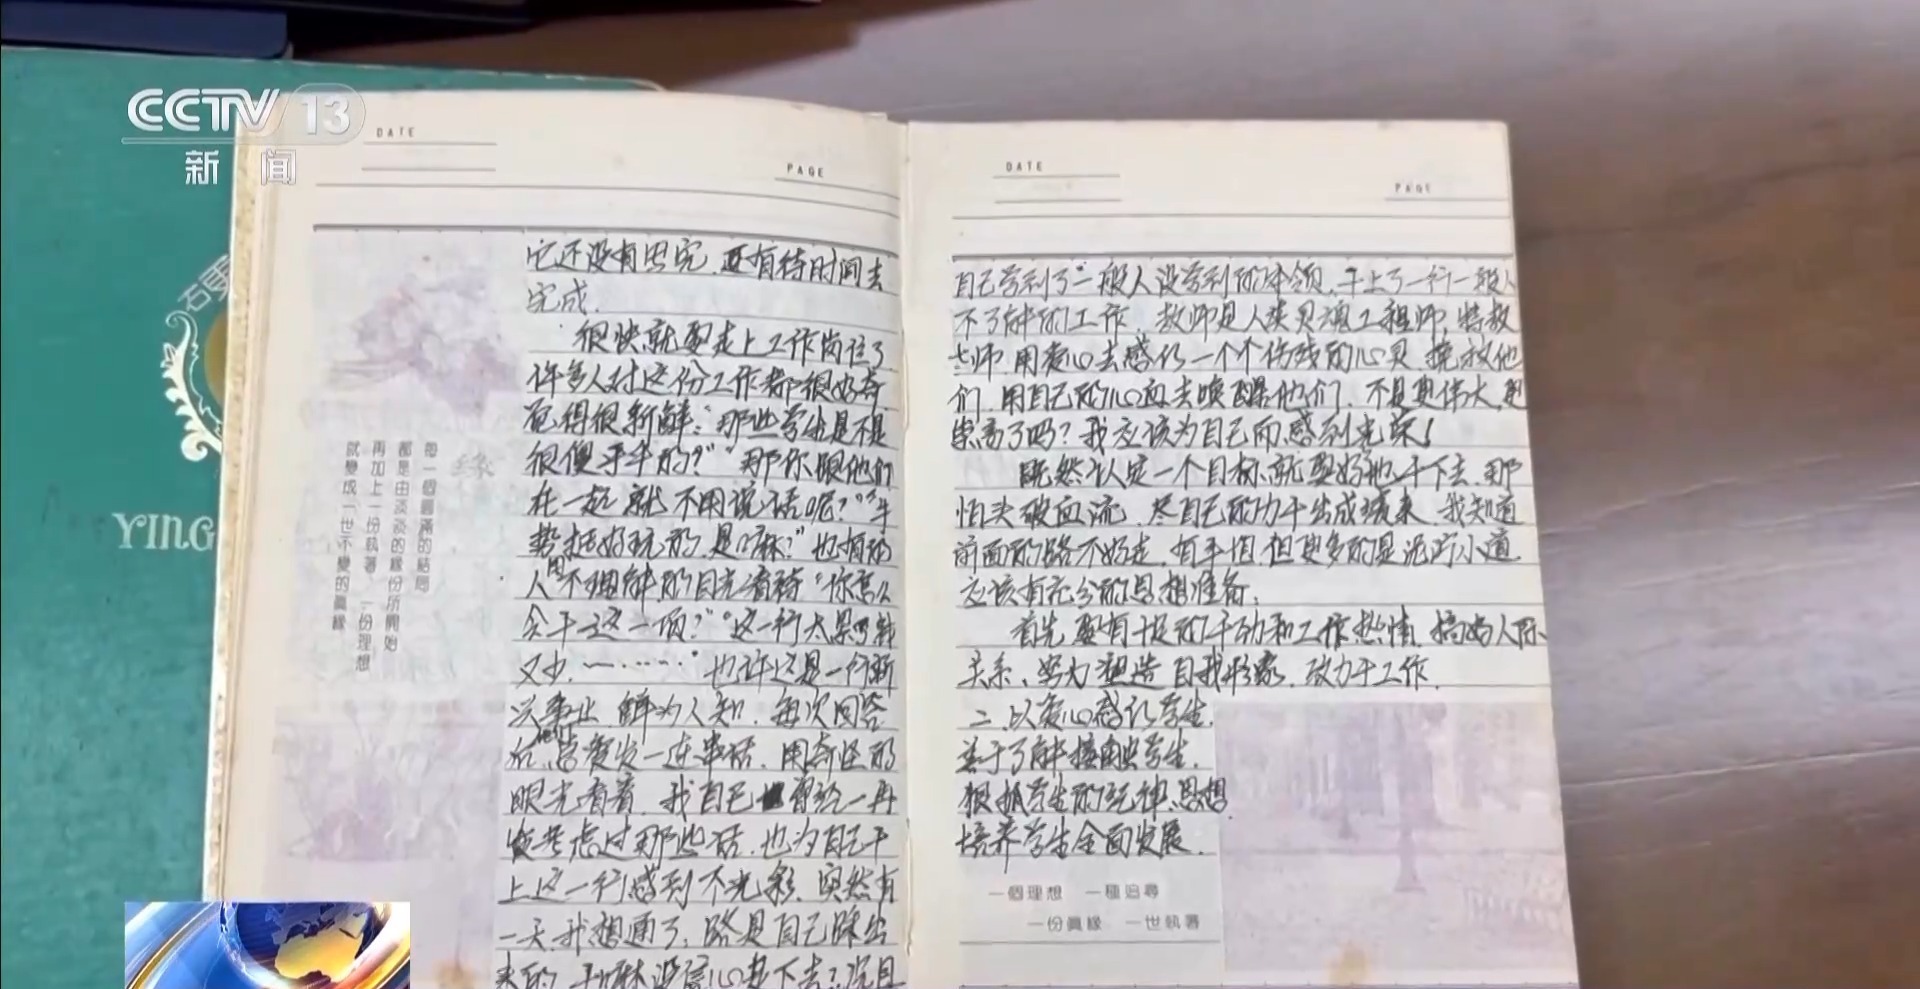 CCTV 13
新闻
YING
DATE
PAGE
它还没有思完,还有待时间去
完成.
很快就要走上工作岗位了
许多人对这份工作都很好奇,
觉得很新鲜:“那些学生是不是
很傻乎乎的?”“那你跟他们
在一起就不用说话呢?”“手
势挺好玩的,是嘛?”也有的
人用不理解的目光看待“你怎么
会干这一项?”“这一行太累
又少……”也许这是一行新
兴事业,鲜为人知.每次回答
后,他们总爱发一连串话,用奇怪的
眼光看着,我自己也曾经一再
考虑过那些话,也为自己干
上这一行感到不光彩.突然有
一天,我想通了,路是自己踩出
来的,干嘛没信心走下去?
每一個圓滿的結局
都是由淡淡的緣份所開始
再加上一份執著 一份理想
就變成一世不變的真緣
緣
DATE
PAGE
自己学到了一般人没学到的本领,干上了一行一般人
不了解的工作.教师是人类灵魂工程师,特教
老师,用爱心去感化一个个伤残的心灵,挽救他
们,用自己的心血去唤醒他们,不是更伟大,更
崇高了吗?我应该为自己而感到光荣!
既然认定一个目标,就要好好地干下去,那
怕头破血流,尽自己的力干出成绩来,我知道
前面的路不好走,有平坦,但更多的是泥泞小道
应该有充分的思想准备.
首先要有十足的干劲和工作热情,搞好人际
关系,努力塑造自我形象,致力于工作.
二、以爱心感化学生.
善于了解接触学生.
狠抓学生的精神、思想.
培养学生全面发展.
一個理想 一種追尋
一份真緣 一世執著